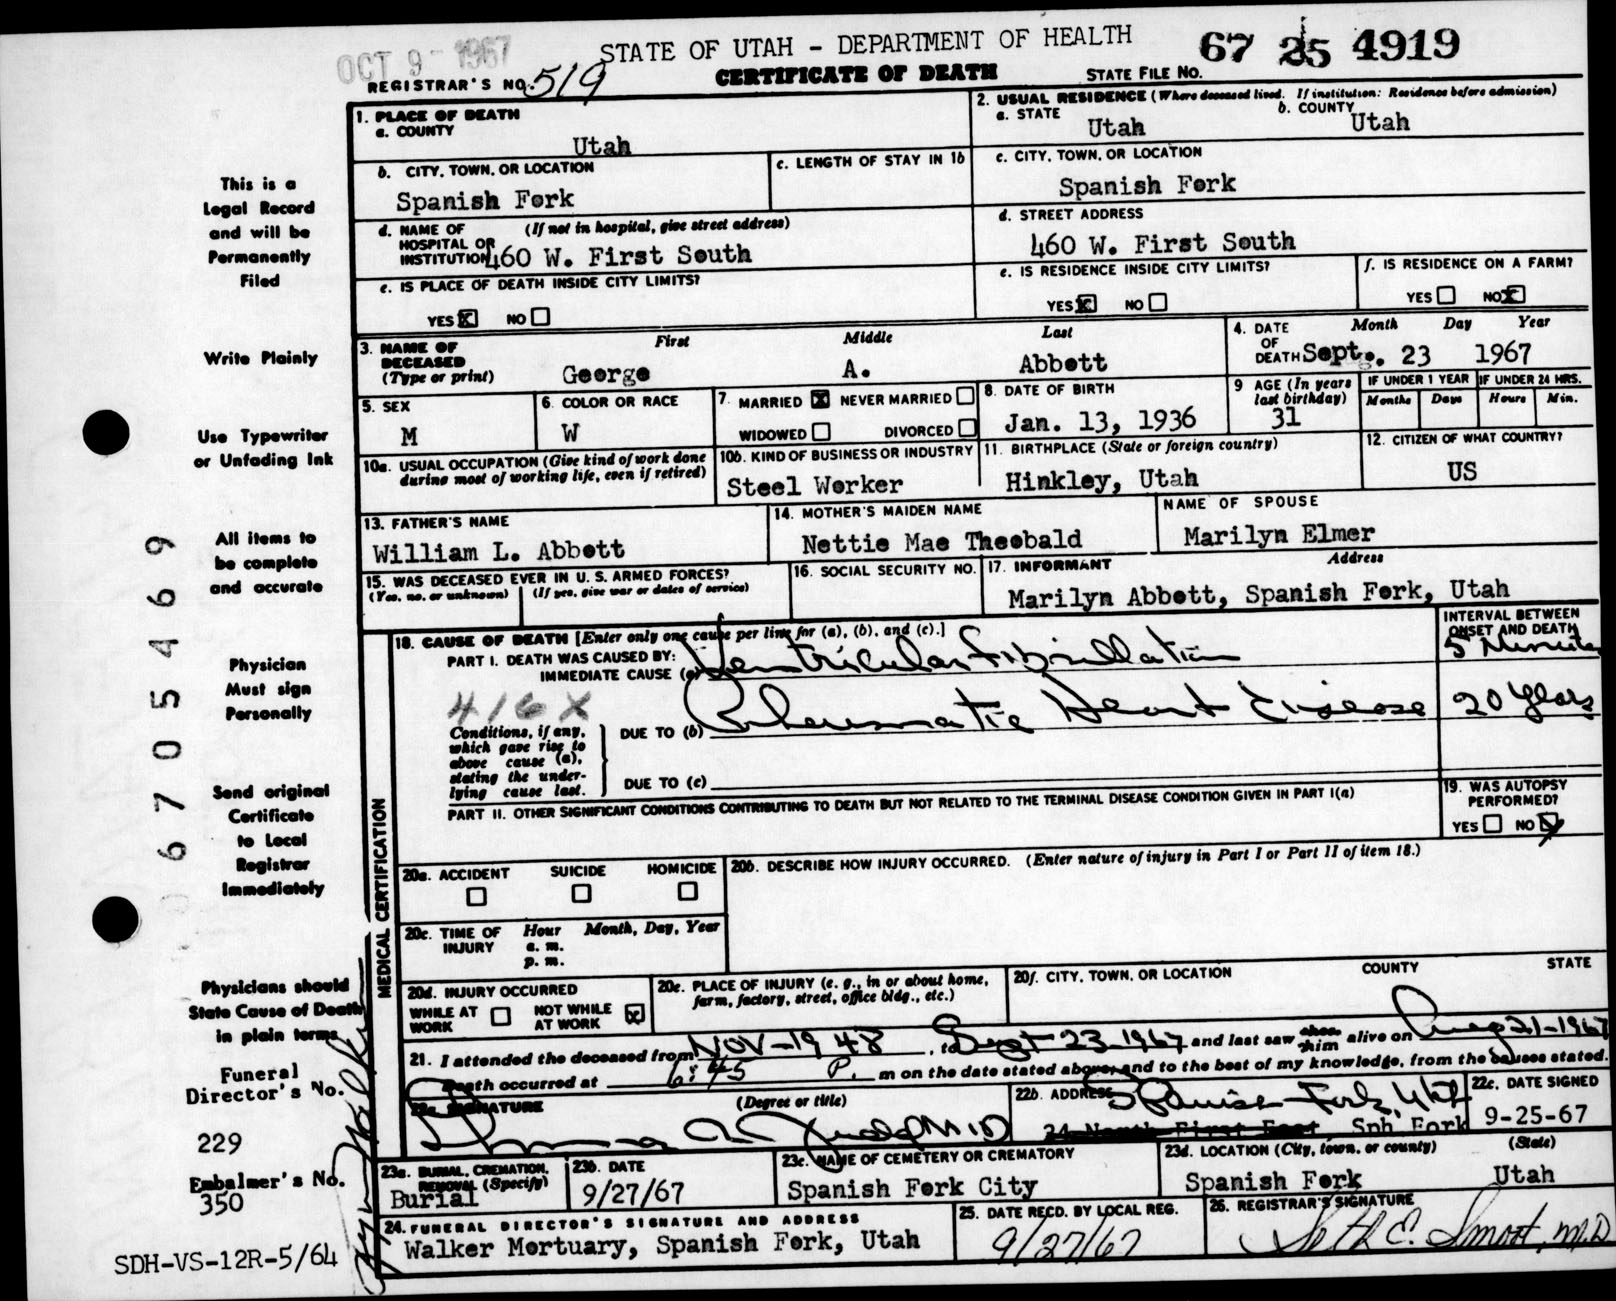 OCT 9 - 1967
STATE OF UTAH - DEPARTMENT OF HEALTH
67 25 4919
REGISTRAR'S NO. 519
CERTIFICATE OF DEATH
STATE FILE NO.
1. PLACE OF DEATH
a. COUNTY
Utah
2. USUAL RESIDENCE (Where deceased lived. If institution: Residence before admission)
a. STATE
Utah
b. COUNTY
Utah
b. CITY, TOWN, OR LOCATION
Spanish Fork
c. LENGTH OF STAY IN 1b
c. CITY, TOWN, OR LOCATION
Spanish Fork
d. NAME OF HOSPITAL OR INSTITUTION
(If not in hospital, give street address)
460 W. First South
d. STREET ADDRESS
460 W. First South
e. IS PLACE OF DEATH INSIDE CITY LIMITS?
YES X NO
e. IS RESIDENCE INSIDE CITY LIMITS?
YES X NO
f. IS RESIDENCE ON A FARM?
YES NO X
3. NAME OF DECEASED
(Type or print)
First Middle Last
George A. Abbott
4. DATE OF DEATH
Month Day Year
Sept. 23 1967
5. SEX
M
6. COLOR OR RACE
W
7. MARRIED X NEVER MARRIED
WIDOWED DIVORCED
8. DATE OF BIRTH
Jan. 13, 1936
9 AGE (In years last birthday)
31
IF UNDER 1 YEAR
Months Days
IF UNDER 24 HRS.
Hours Min.
10a. USUAL OCCUPATION (Give kind of work done during most of working life, even if retired)
10b. KIND OF BUSINESS OR INDUSTRY
Steel Worker
11. BIRTHPLACE (State or foreign country)
Hinkley, Utah
12. CITIZEN OF WHAT COUNTRY?
US
13. FATHER'S NAME
William L. Abbott
14. MOTHER'S MAIDEN NAME
Nettie Mae Theobald
NAME OF SPOUSE
Marilyn Elmer
15. WAS DECEASED EVER IN U. S. ARMED FORCES?
(Yes, no, or unknown) (If yes, give war or dates of service)
16. SOCIAL SECURITY NO.
17. INFORMANT Address
Marilyn Abbott, Spanish Fork, Utah
MEDICAL CERTIFICATION
18. CAUSE OF DEATH [Enter only one cause per line for (a), (b), and (c).]
INTERVAL BETWEEN ONSET AND DEATH
PART I. DEATH WAS CAUSED BY:
IMMEDIATE CAUSE (a) Ventricular Fibrillation
5 Minutes
416X
Conditions, if any, which gave rise to above cause (a), stating the underlying cause last.
DUE TO (b) Rheumatic Heart Disease
20 Years
DUE TO (c)
PART II. OTHER SIGNIFICANT CONDITIONS CONTRIBUTING TO DEATH BUT NOT RELATED TO THE TERMINAL DISEASE CONDITION GIVEN IN PART I(a)
19. WAS AUTOPSY PERFORMED?
YES NO X
20a. ACCIDENT SUICIDE HOMICIDE
20b. DESCRIBE HOW INJURY OCCURRED. (Enter nature of injury in Part I or Part II of item 18.)
20c. TIME OF INJURY
Hour Month, Day, Year
a. m.
p. m.
20d. INJURY OCCURRED
WHILE AT WORK NOT WHILE AT WORK X
20e. PLACE OF INJURY (e. g., in or about home, farm, factory, street, office bldg., etc.)
20f. CITY, TOWN, OR LOCATION COUNTY STATE
21. I attended the deceased from Nov-1948, to Sept 23 1967 and last saw him alive on Aug 21-1967
Death occurred at 6:45 P. m on the date stated above, and to the best of my knowledge, from the causes stated.
22a. SIGNATURE
(Degree or title)
M.D
22b. ADDRESS
Spanish Fork, Utah
24 North First East Sph Fork
22c. DATE SIGNED
9-25-67
23a. BURIAL, CREMATION, REMOVAL (Specify)
Burial
23b. DATE
9/27/67
23c. NAME OF CEMETERY OR CREMATORY
Spanish Fork City
23d. LOCATION (City, town, or county) (State)
Spanish Fork Utah
24. FUNERAL DIRECTOR'S SIGNATURE AND ADDRESS
Walker Mortuary, Spanish Fork, Utah
25. DATE RECD. BY LOCAL REG.
9/27/67
26. REGISTRAR'S SIGNATURE
Seth E. Smoot, M.D
This is a
Legal Record
and will be
Permanently
Filed
Write Plainly
Use Typewriter
or Unfading Ink
All items to
be complete
and accurate
Physician
Must sign
Personally
Send original
Certificate
to Local
Registrar
Immediately
Physicians should
State Cause of Death
in plain terms
Funeral
Director's No.
229
Embalmer's No.
350
SDH-VS-12R-5/64
6705469